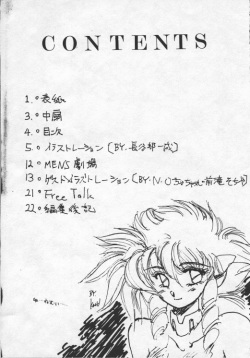 CONTENTS
1.表紙
3.中扉
4.目次
5.イラストレーション〔BY.長谷部一成〕
12.MENS劇場
13.ゲストイラストレーション〔BY:N.O
21.Free Talk
22.編集後記
BY.